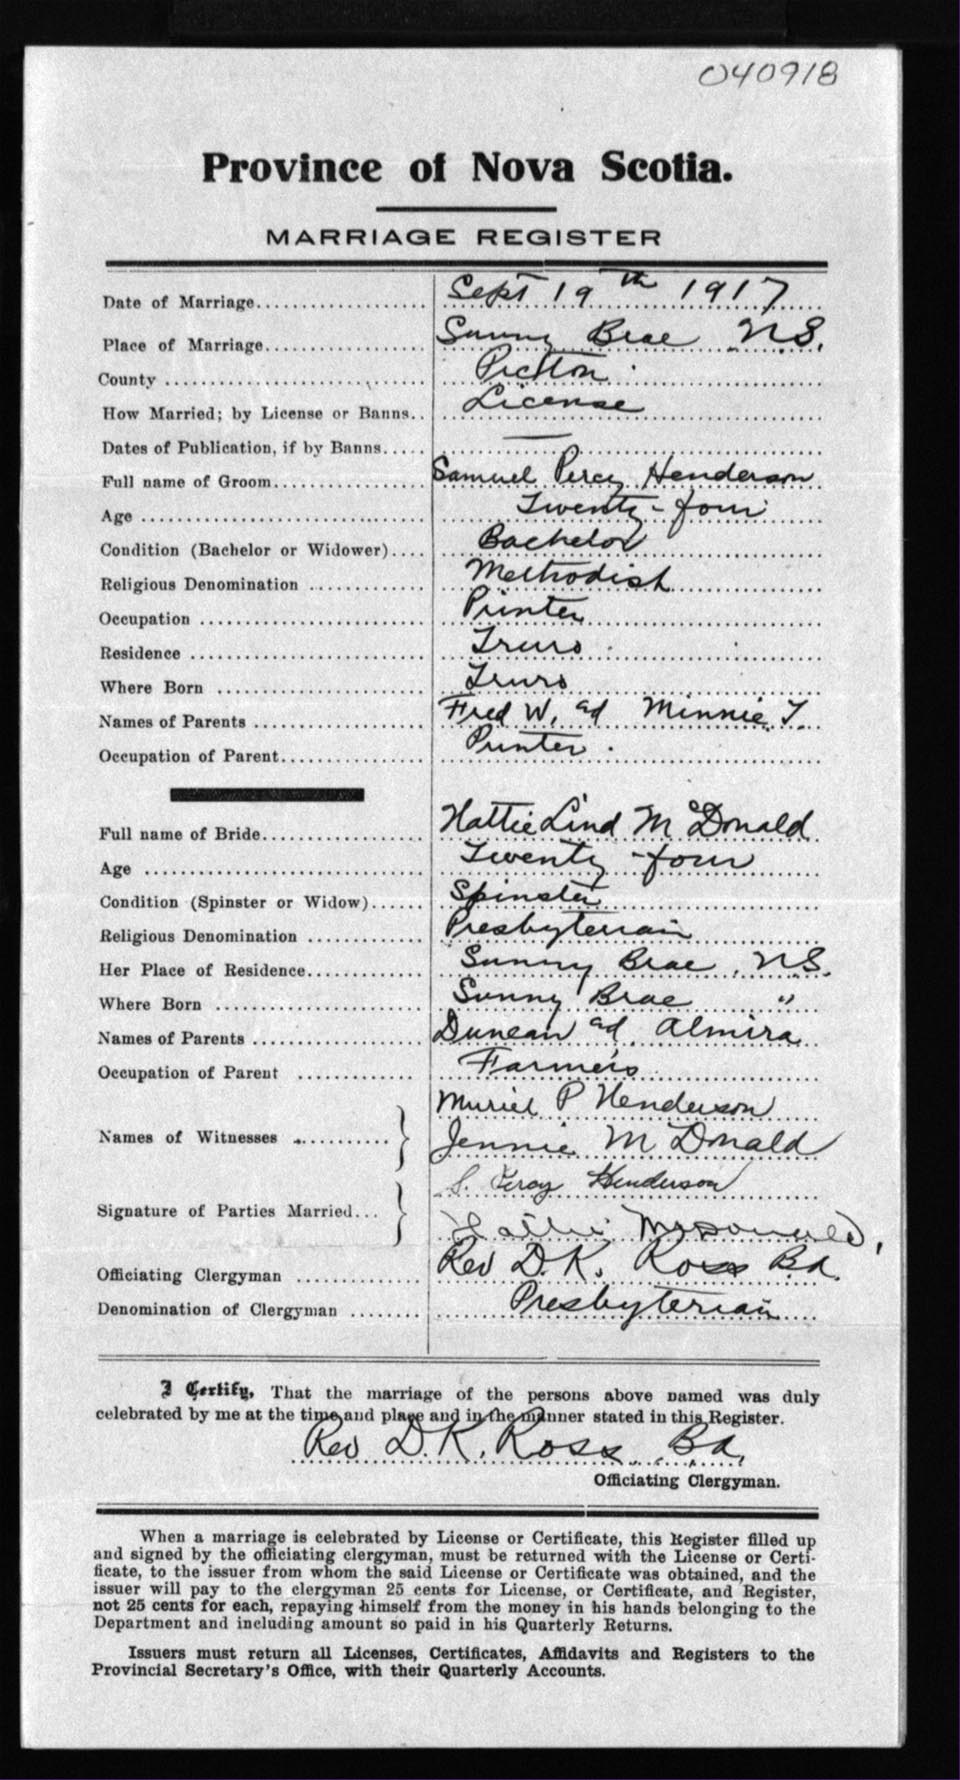 040918
Province of Nova Scotia.
MARRIAGE REGISTER
Date of Marriage Sept 19th 1917
Place of Marriage Sunny Brae N.S.
County Pictou
How Married; by License or Banns License
Dates of Publication, if by Banns —
Full name of Groom Samuel Percy Henderson
Age Twenty-four
Condition (Bachelor or Widower) Bachelor
Religious Denomination Methodist
Occupation Printer
Residence Truro
Where Born Truro
Names of Parents Fred W. ad Minnie T.
Occupation of Parent Printer
Full name of Bride Hattie Lind McDonald
Age Twenty-four
Condition (Spinster or Widow) Spinster
Religious Denomination Presbyterian
Her Place of Residence Sunny Brae, N.S.
Where Born Sunny Brae "
Names of Parents Duncan ad Almira
Occupation of Parent Farmers
Muriel P Henderson
Names of Witnesses
Jennie McDonald
S. Percy Henderson
Signature of Parties Married
Hattie McDonald,
Officiating Clergyman Rev D.K. Ross B.A.
Denomination of Clergyman Presbyterian
I Certify, That the marriage of the persons above named was duly
celebrated by me at the time and place and in the manner stated in this Register.
Rev D.K. Ross BA,
Officiating Clergyman.
When a marriage is celebrated by License or Certificate, this Register filled up
and signed by the officiating clergyman, must be returned with the License or Certi-
ficate, to the issuer from whom the said License or Certificate was obtained, and the
issuer will pay to the clergyman 25 cents for License, or Certificate, and Register,
not 25 cents for each, repaying himself from the money in his hands belonging to the
Department and including amount so paid in his Quarterly Returns.
Issuers must return all Licenses, Certificates, Affidavits and Registers to the
Provincial Secretary's Office, with their Quarterly Accounts.